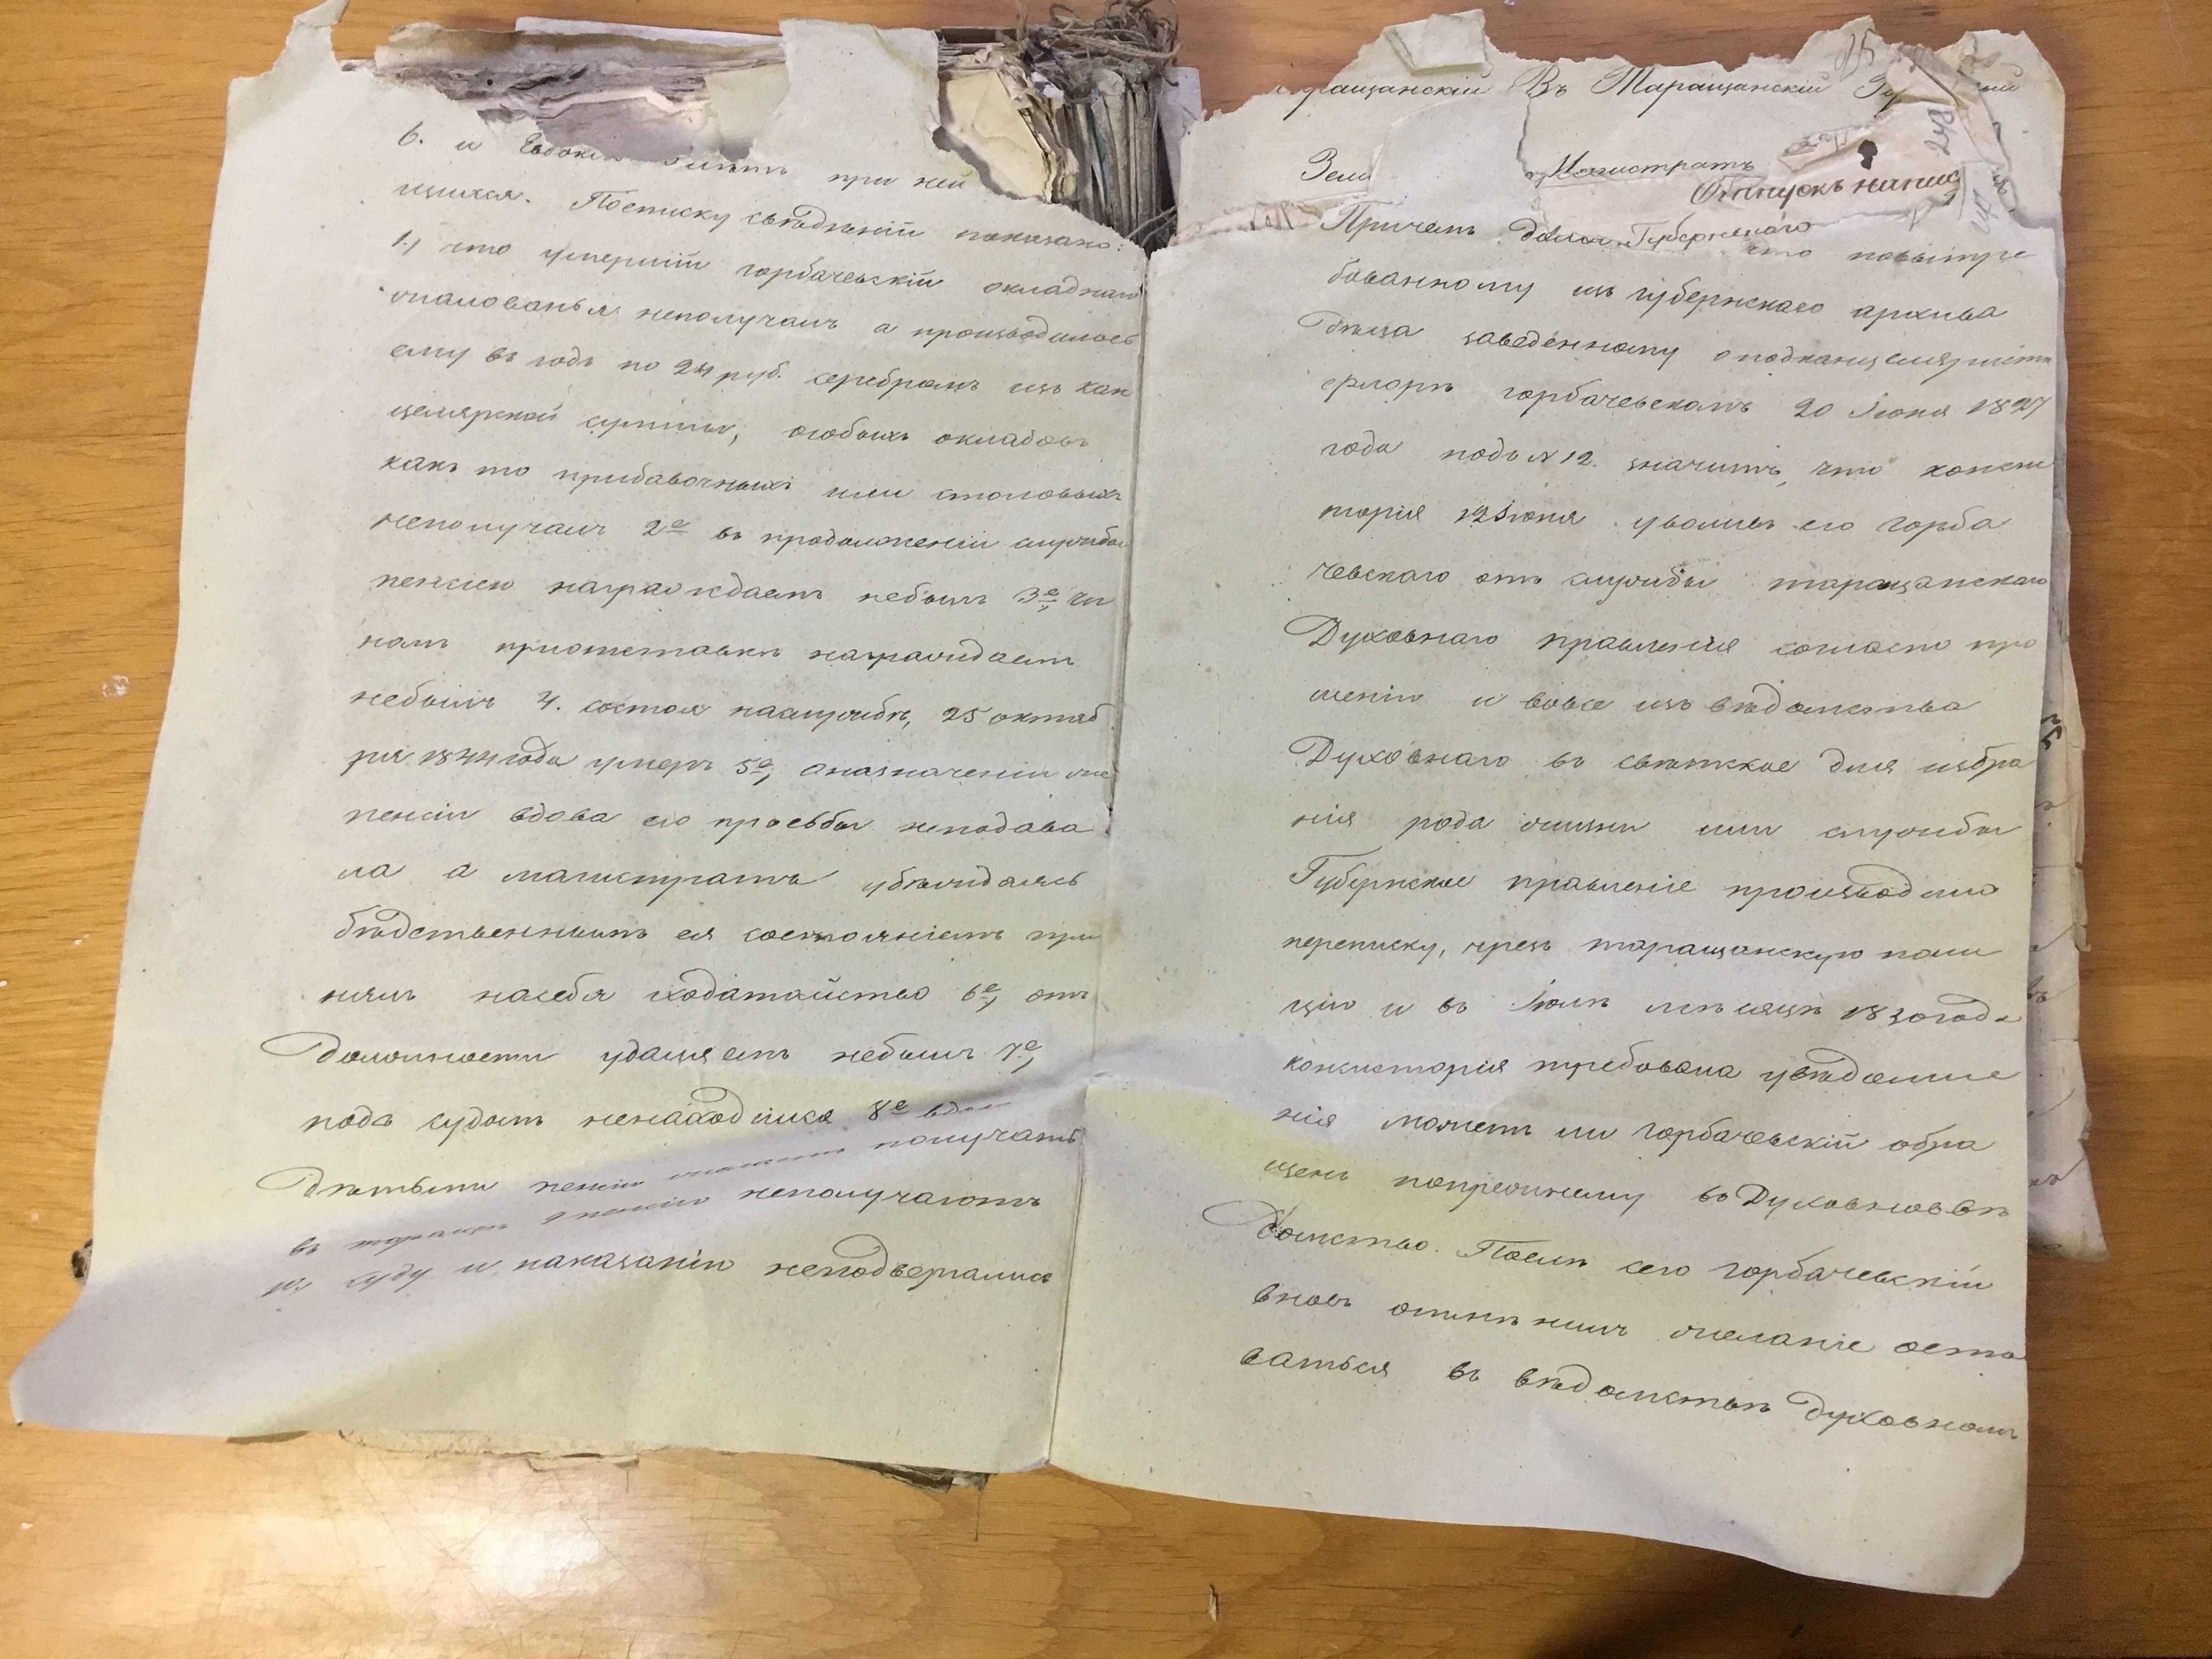 6. и при ней
щихся. По списку сведений показано:
1, что умерший Горбачевский окладнаго
жалованья неполучалъ а производилось
ему въ годъ по 24 руб. серебромъ изъ кан
целярской суммы, особыхъ окладовъ
какъ то прибавочныхъ или столовыхъ
неполучалъ 2е въ продолжении службы
пенсіею награждаемъ небылъ 3е, чи
номъ приотставкѣ награждаемъ
небылъ 4. состоя наслужбѣ, 25 октяб
ря 1844 года умеръ 5е, оназначеніи
пенсіи вдова его просьбы неподава
ла а магистратъ убѣждаясь
бѣдственнымъ ея состояніемъ при
нялъ насебя ходатайство 6е, отъ
Должности удаляемъ небылъ 7е,
подъ судомъ ненаходился 8е
Дѣтьми пенсію получать
въ неполучаютъ
суду и наказанію неподвергались
Въ Таращанскій
Магистратъ
Отпускъ
Причемъ Губернскаго
что повытре
бованному изъ губернскаго архива
Дѣла заведенному оподканцеляристѣ
Флорѣ Горбачевскомъ 20 Іюня 1827
года подъ N 12. значитъ, что конси
торія 12 Іюня уволивъ его Горба
чевскаго отъ службы таращанскаго
Духовнаго правленія согласно про
шенію и вовсе изъ вѣдомства
Духовнаго въ свѣтское для избра
нія рода жизни или службы
Губернское правленіе производило
переписку, чрезъ таращанскую поли
цію и въ Іюлѣ мѣсяцѣ 1830 года
консисторія требовала увѣдомле
нія можетъ ли Горбачевскій обра
щенъ попрежнему въ Духовное Вѣ
домство. Послѣ сего Горбачевскій
вновь отмѣнилъ желаніе оста
ваться въ вѣдомствѣ Духовномъ